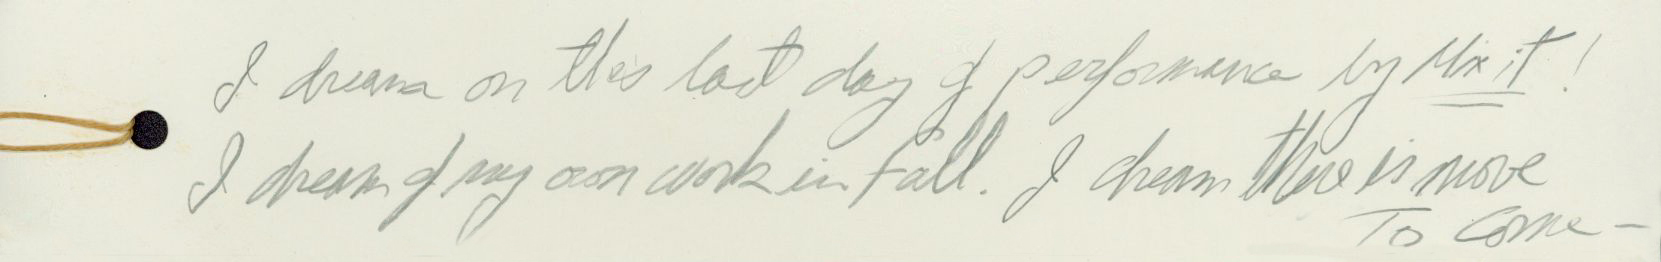 I dream on this last day of performance by Mix it!
I dream of my own work in Fall. I dream there is more
To Come -